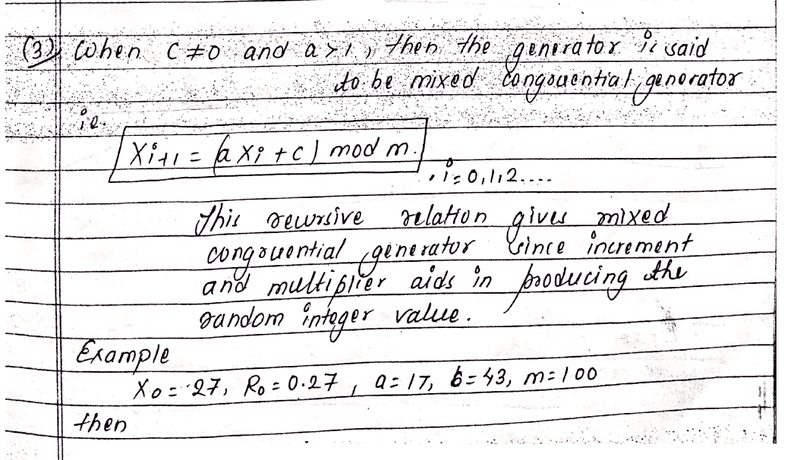 (3) When C ≠ 0 and a > 1, then the generator is said
to be mixed congruential generator
ie.
Xi+1 = (a Xi + c) mod m.
, i = 0,1,2....
This recursive relation gives mixed
congruential generator since increment
and multiplier aids in producing the
random integer value.
Example
X0 = 27, R0 = 0.27, a = 17, b = 43, m = 100
then